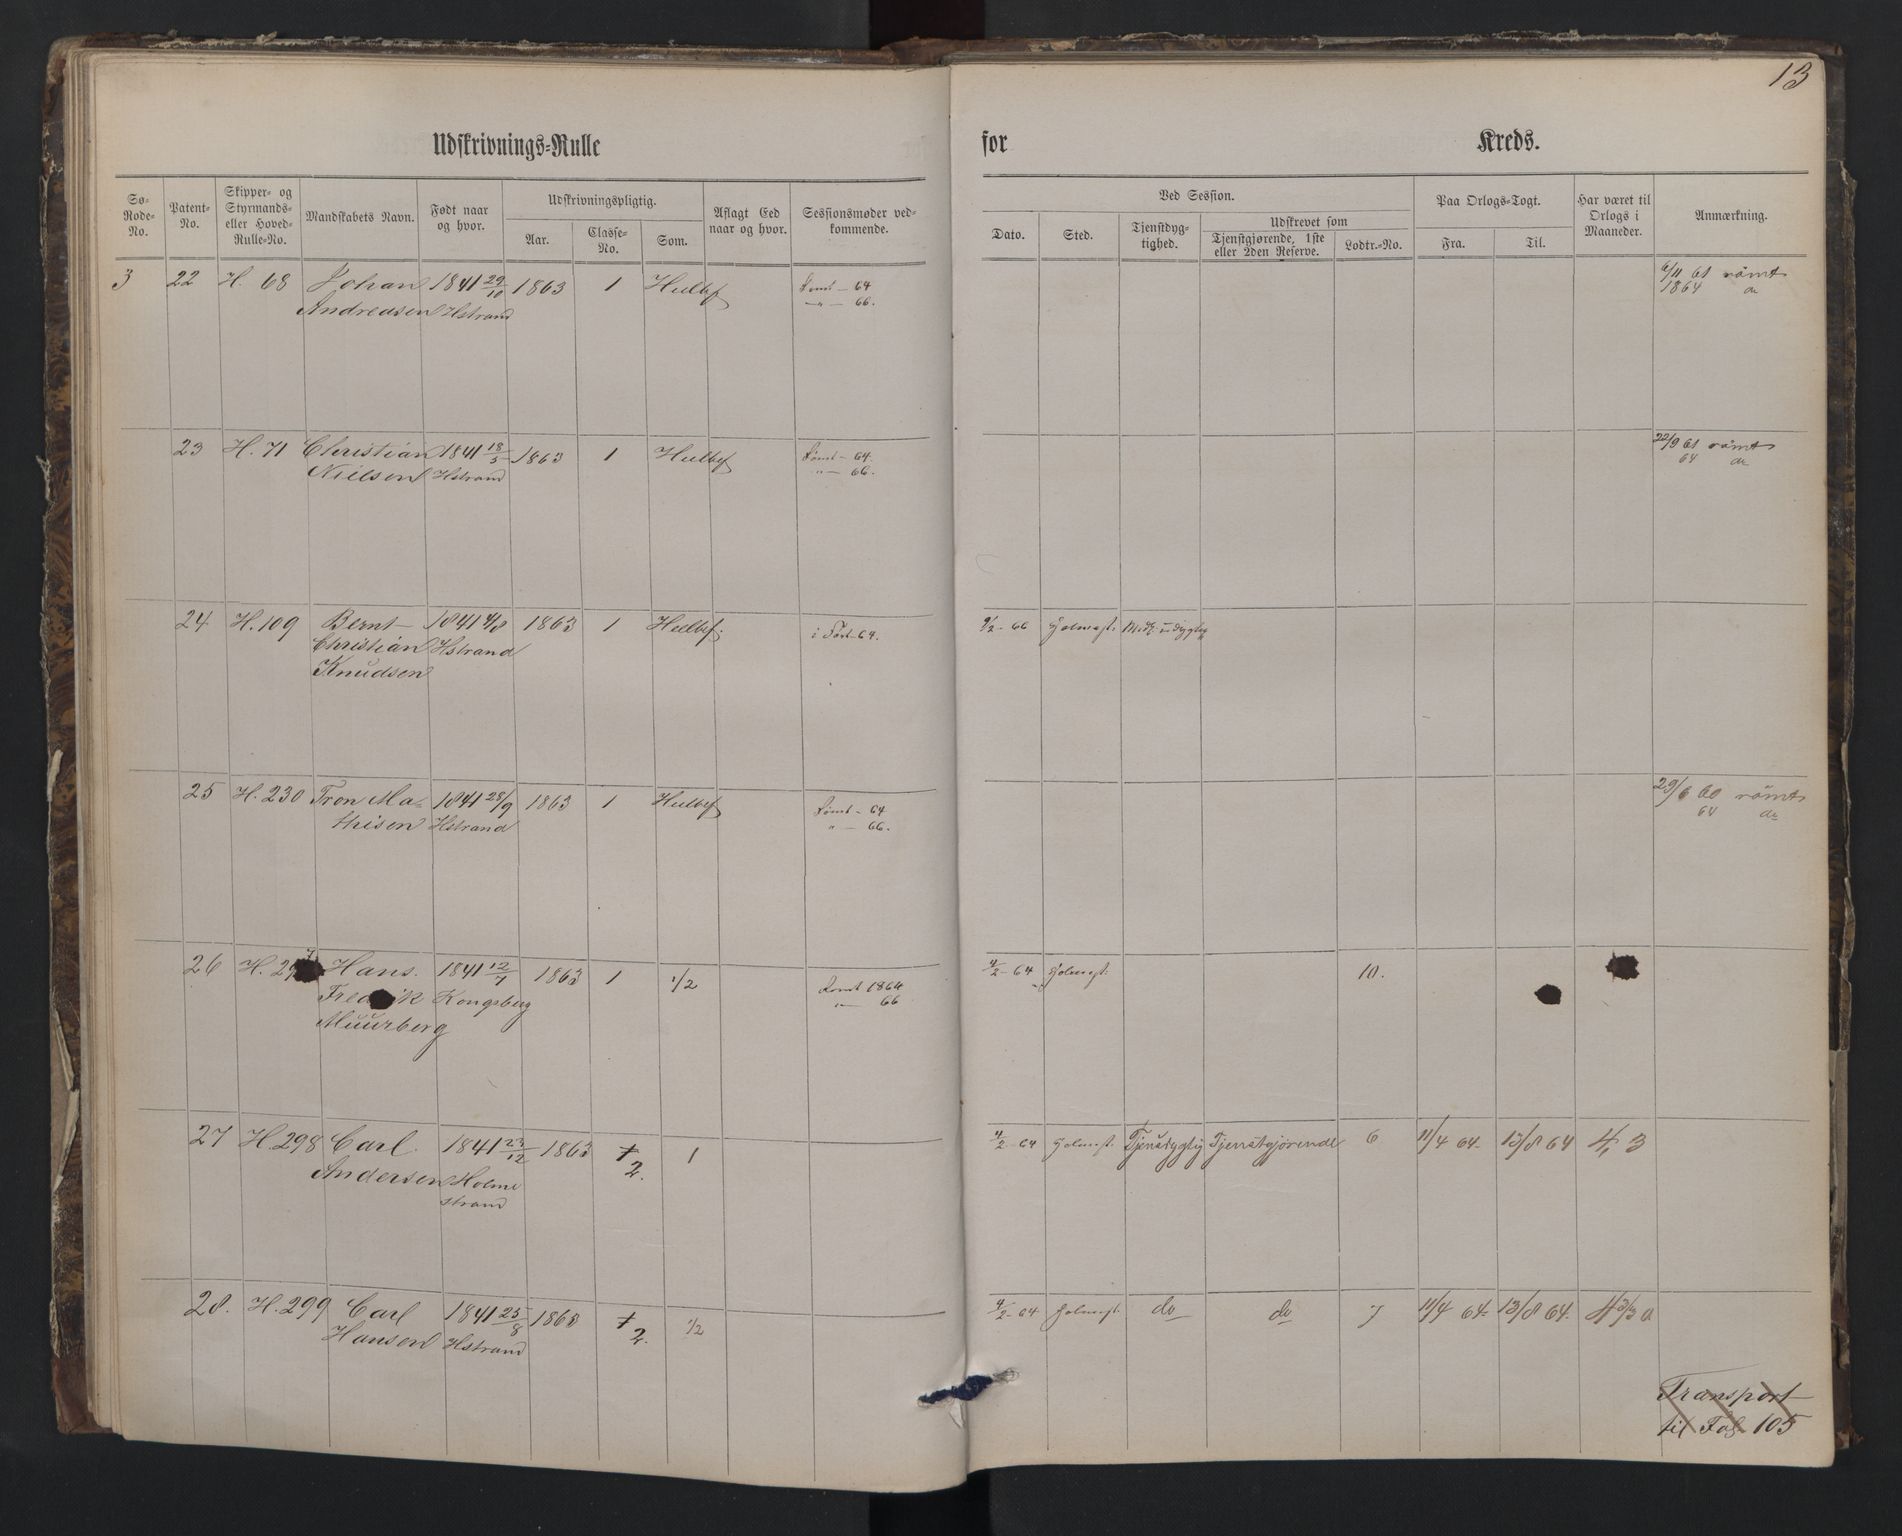 13
Udskrivnings-Rulle for Kreds.
Sø-Rode-No. Patent-No. Skipper- og Styrmands- eller Hoved-Rulle-No. Mandskabets Navn. Født naar og hvor. Udskrivningspligtig. Aar. Classe-No. Som. Aflagt Eed naar og hvor. Sessionsmøder vedkommende.
Ved Session. Dato. Sted. Tjenstdygtighed. Udskrevet som Tjenstgjørende, 1ste eller 2den Reserve. Lodtr.-No. Paa Orlogs-Togt. Fra. Til. Har været til Orlogs i Maaneder. Anmærkning.
3 22 H. 68 Johan 1841 29/10 1863 1 Hulbf Rømt - 64 6/11 61 rømt
Andreasen Hstrand -"- 66. 1864 do
23 H. 71 Christian 1841 18/5 1863 1 Hulbf Rømt - 64. 22/9 61 rømt
Nielsen Hstrand " - 66. 64 do
24 H. 109 Bernt 1841 4/8 1863 1 Hulbf. i Fart 64. 9/2 - 66 Holmest:
Christian Hstrand
Knudsen
25 H. 230 Tron Ma- 1841 28/9 1863 1 Hulbf Rømt - 64 29/6 60 rømt
thisen Hstrand " - 66. 64 do
26 H. 297 Hans. 1841 12/7 1863 1 1/2 Rømt 1864 4/2 - 64 Holmest: 10.
Fredrik Kongsberg " 66
Muurberg
27 H. 298 Carl. 1841 23/12 1863 1 2. 1 4/2 - 64 Holmest. Tjenstdygtig Tjenstgjørende 6 11/4 64. 13/8 64 4,3
Andersen Holme
strand
28. H. 299 Carl 1841 25/8 1863 1 2. 1/2 4/2 - 64 Holmest. do do 7 11/4 64. 13/8 64. 4 3/30
Hansen Hstrand
Transport
til Fol. 105